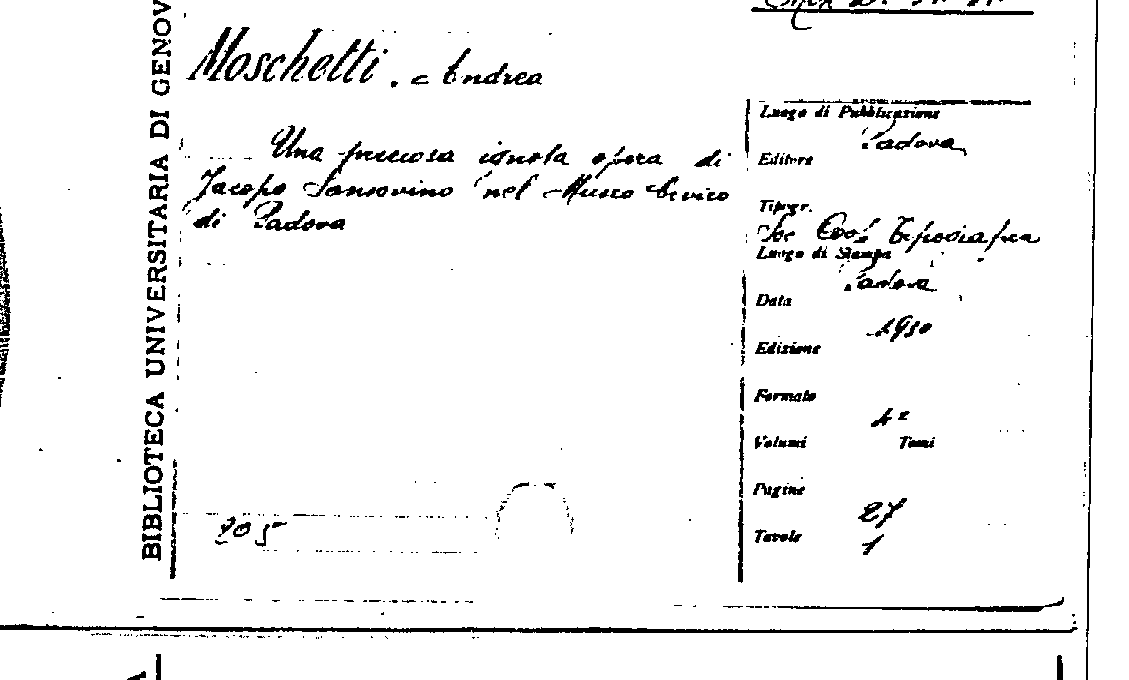 BIBLIOTECA UNIVERSITARIA DI GENOV
Moschetti, Andrea
Una preziosa ignota opera di
Jacopo Sansovino nel Museo Civico
di Padova
205
Luogo di Pubblicazione
Padova
Editore
Tipogr.
Soc Coop Tipografica
Luogo di Stampa
Padova
Data
1930
Edizione
Formato
4°
Volumi Tomi
Pagine
27
Tavole
1